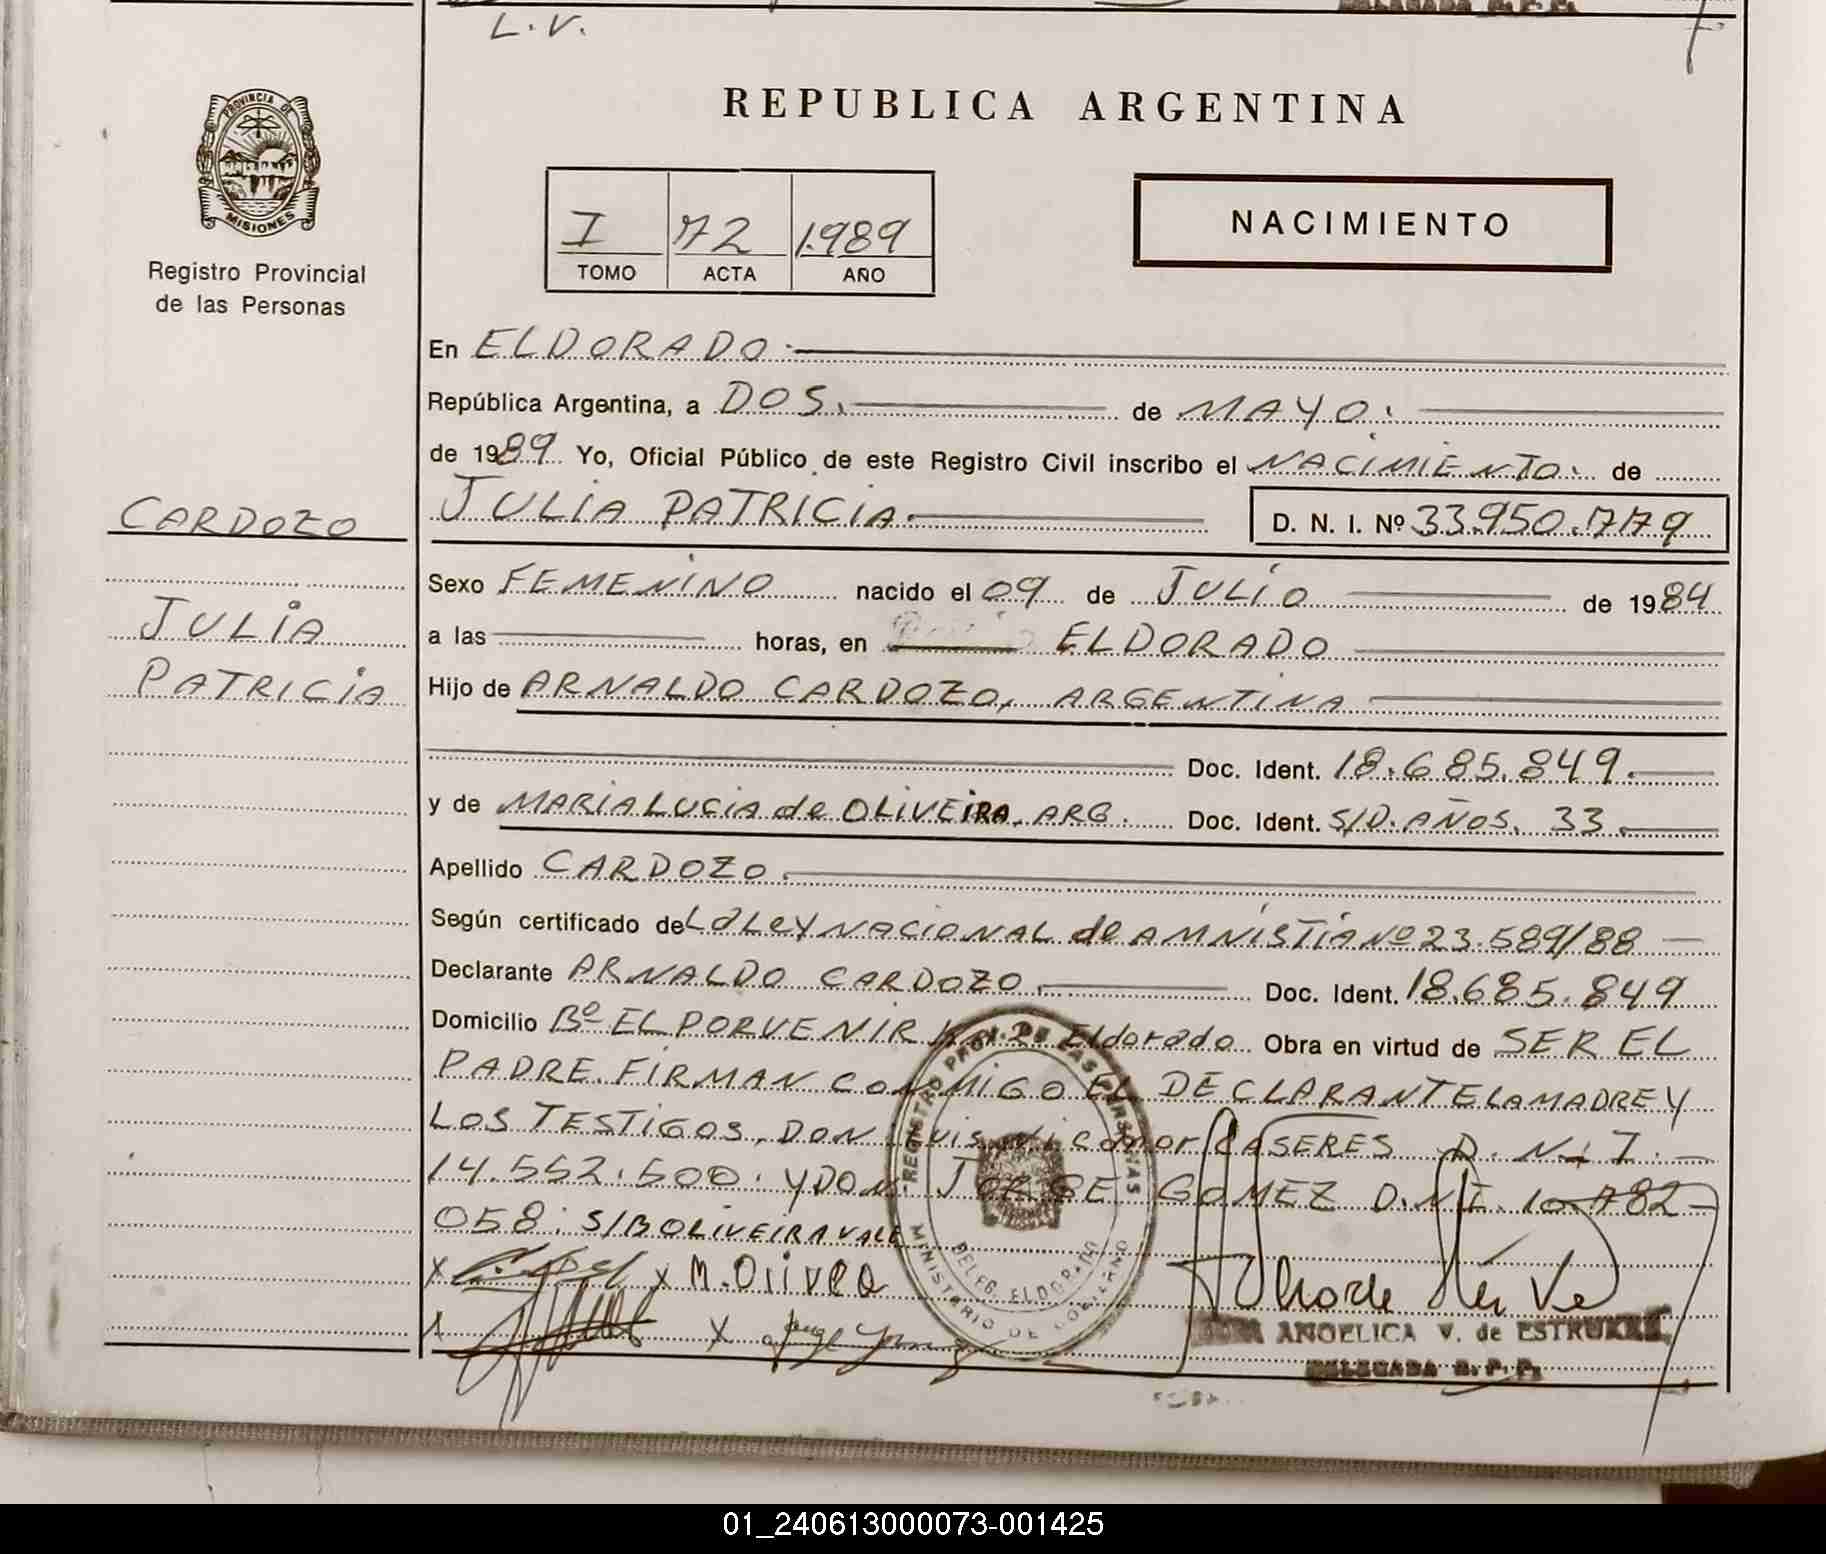 L.V.
PROVINCIA DE
MISIONES
REPUBLICA ARGENTINA
I 72 1.989
TOMO ACTA AÑO
NACIMIENTO
Registro Provincial
de las Personas
En ELDORADO.
República Argentina, a DOS. de MAYO.
de 1989 Yo, Oficial Público de este Registro Civil inscribo el NACIMIENTO. de
CARDOZO
JULIA PATRICIA. D. N. I. Nº 33.950.779
Sexo FEMENINO nacido el 09 de JULIO de 1984
JULIA
a las horas, en ELDORADO
PATRICIA
Hijo de ARNALDO CARDOZO, ARGENTINA
Doc. Ident. 18.685.849.
y de MARIA LUCIA de OLIVEIRA, ARG. Doc. Ident. S/D. AÑOS. 33.
Apellido CARDOZO.
Según certificado de La Ley NACIONAL de AMNISTIA Nº 23.589/88
Declarante ARNALDO CARDOZO. Doc. Ident. 18.685.849
Domicilio Bº EL PORVENIR Eldorado Obra en virtud de SER EL
PADRE. FIRMAN CONMIGO EL DECLARANTE LA MADRE Y
LOS TESTIGOS, DON Luis Nicanor CASERES D.N.I.
14.552.500. Y DON JORGE GOMEZ D.N.I. 10.782
058. S/B OLIVEIRA VALE
REGISTRO PROV. DE LAS PERSONAS
MINISTERIO DE GOBIERNO
DELEG. ELDORADO
X X M. Olivea
X
ANGELICA V. de
DELEGADA R.P.P.
01_240613000073-001425